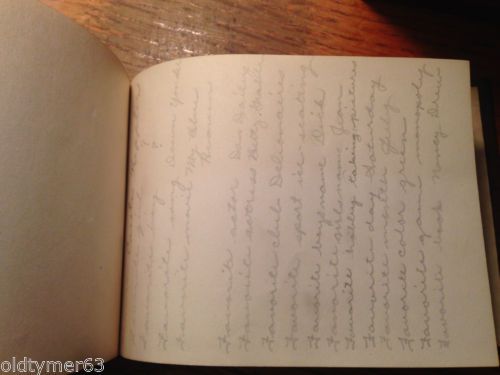 Favorite
Favorite boy ?
Favorite song
Favorite movie My Blue
Heaven
Favorite actor Dan Dailey
Favorite actress Betty Grable
Favorite club
Favorite sport ice-skating
Favorite boys name Dick
Favorite girls name Jean
Favorite hobby taking pictures
Favorite day Saturday
Favorite month July
Favorite color green
Favorite game monopoly
Favorite book Nancy Drew
oldtymer63